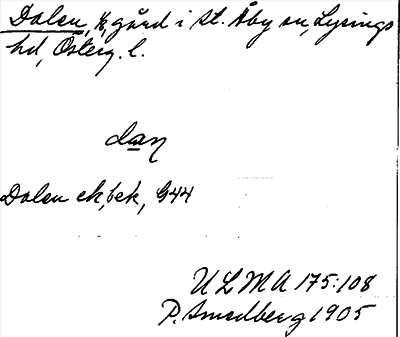 Dalen, gård i St. Åby sn, Lysings
hd, Österg. l.
dan
Dalen ek, bek, G44
ULMA 175:108
P. Smedberg 1905